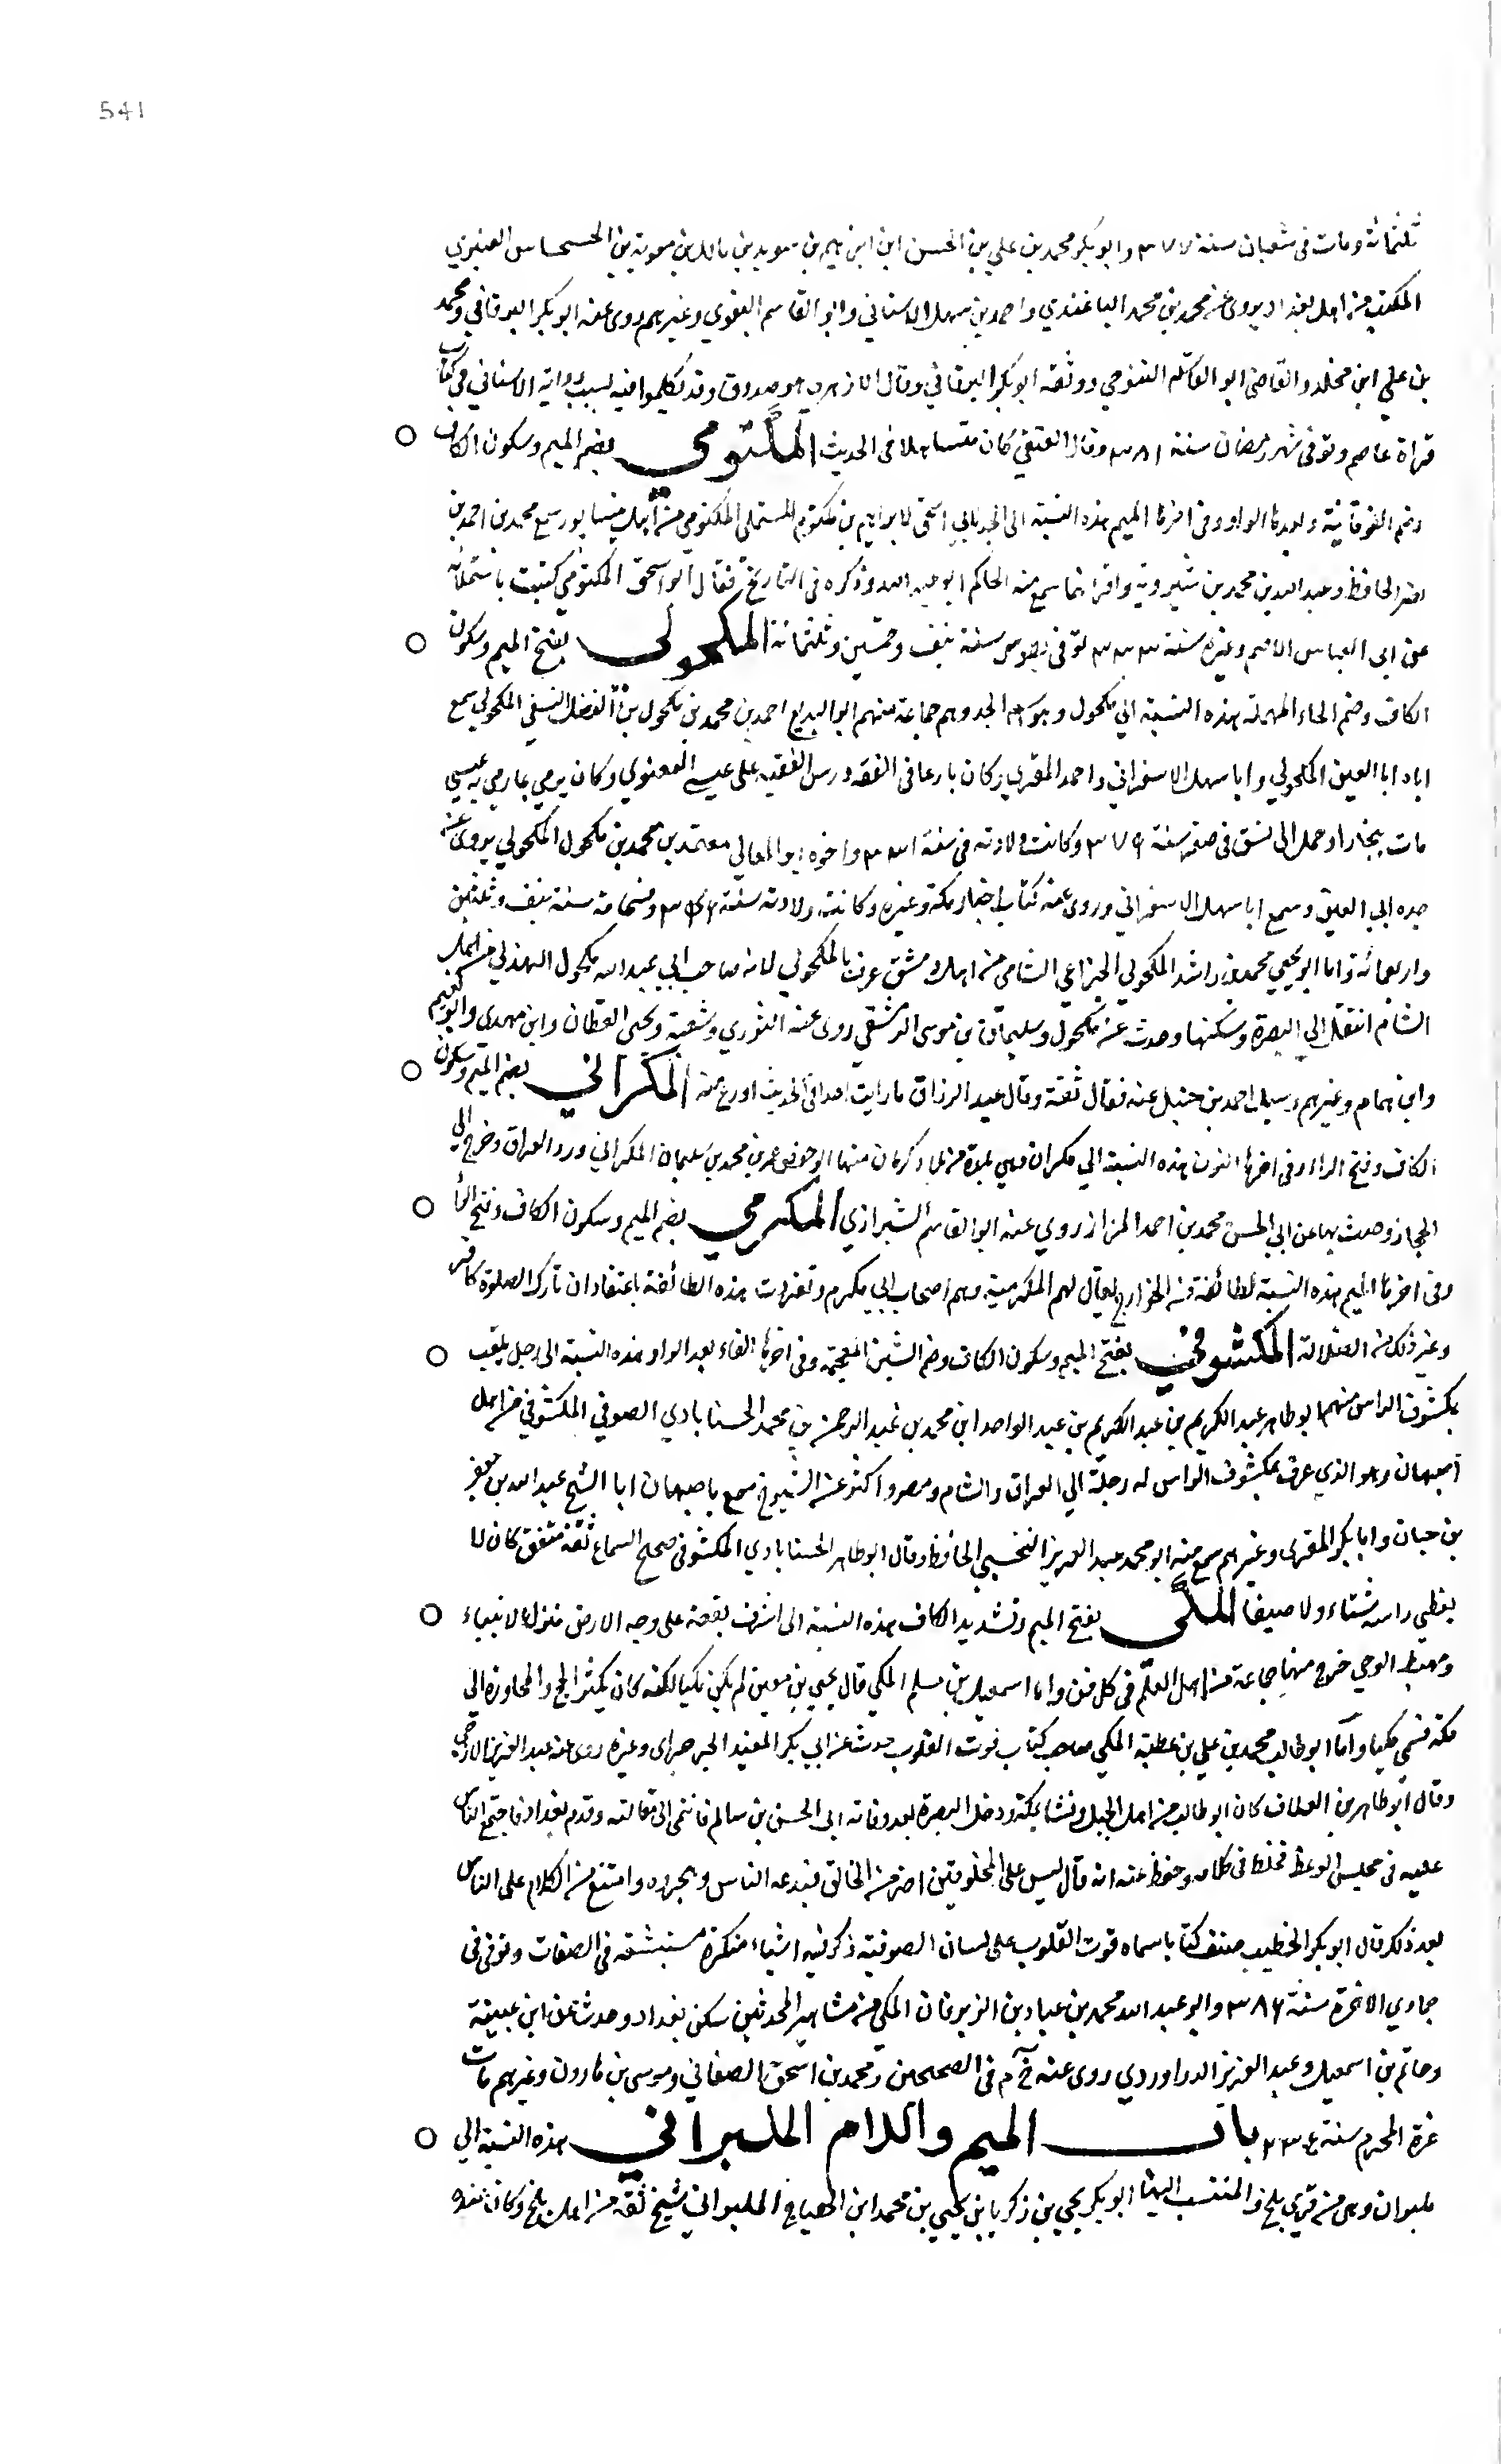 541
ثلثمائة ومات فى شعبان سنة ٣٧٧ وابو بكر محمد بن علي بن الحسن ابن ابراهيم بن سويد بن مالك بن معوية بن الحسحاس العنبري
المكتب من اهل بغداد يروى عن محمد بن محمد الباغندي واحمد بن سهل الاسناني وابو القاسم البغوي وغيرهم روى عنه ابو بكر البرقاني ومحمد
بن علي ابن مخلد والقاضى ابو القاسم التنوخي ووثقه ابو بكر البرقاني وقال الازهري هو صدوق وقد تكلموا فيه بسبب روايته الاسناني في كتاب
قراة عاصم وتوفى شهر رمضان سنة ٣٨١ وقال العتقي كان متساهلا فى الحديث المكتومي بضم الميم وسكون الكاف
وضم الفوقانية وبعدها الواو وفى اخرها الميم هذه النسبة الى الجد ابى اسحق ابراهيم بن مكتوم المستملى المكتومي من اهل نيسابور سمع محمد بن احمد بن
الحافظ وعبد الله بن محمد بن شيروية واقرانهما سمع منه الحاكم ابو عبد الله وذكره فى التاريخ فقال ابو اسحق المكتومي كتبت باستملائه
عن ابى العباس الاصم وغيره سنة ٣٣٣ توفى سنة نيف وخمسين وثلثمائة المكحولى بفتح الميم وسكون
الكاف وضم الحاء المهملة هذه النسبة الي مكحول وهو اسم الجد وهم جماعة منهم ابو البديع احمد بن محمد بن مكحول بن الفضل النسفي المكحولي سمع
اباه ابا المعين المكحولي وابا سهل الاسفرانى واحمد المقري وكان بارعا فى الفقه درس الفقيه على عيسى الغضنوي وكان يرمي بما رمي به عيسى
مات ببخارا وحمل الى نسف فى صفر سنة ٣٧٩ وكانت ولادته فى سنة ٣٣١ واخوه ابو المعالي معتمد بن محمد بن مكحول المكحولي يروى عن
جده ابى المعين وسمع ابا سهل الاسفرانى وروى عنه كتاب اخبار مكة وغيره وكانت ولادته سنة ومات سنة نيف وثلثين
واربعمائة واما ابو يحيى محمد بن راشد المكحولي الخزاعي الشامى من اهل دمشق عرف بالمكحولي لانه صاحب ابي عبد الله مكحول الهذلي من اهل
الشام انتقل الي البصرة وسكنها وحدث عن مكحول وسليمان بن موسى الدمشقي روى عنه الثوري وشعبة ويحيى القطان وابن مهدى وابو نعيم
وابن همام وغيرهم وسيل احمد بن حنبل عنه فقال ثقة وقال عبد الرزاق ما رايت احدا فى الحديث اورع منه المكراني بضم الميم وسكون
الكاف وفتح الراء وفى اخرها النون هذه النسبة الي مكران وهي بلدة من بلاد كرمان منها ابو حفص عمر بن محمد بن سليمان المكراني ورد العراق وخرج الي
الحجاز وحدث بها عن ابي الحسن محمد بن احمد البزاز روي عنه ابو القاسم الشيرازي المكرمي بضم الميم وسكون الكاف وفتح الراء
وفى اخرها الميم هذه النسبة لطائفة من الخوارج يقال لهم المكرمية وهم اصحاب ابي مكرم وتفردت هذه الطائفة باعتقاد ان تارك الصلوة كافر
وغير ذلك من الضلالة المكشوفي بفتح الميم وسكون الكاف وضم الشين المعجمة وفى اخرها الفاء بعد الواو هذه النسبة الى رجل يلقب
بمكشوف الراس منهم ابو طاهر عبد الكريم بن عبد الكريم بن عبد الواحد ابن محمد بن عبد الرحمن بن محمد الحسناباذي الصوفي المكشوفي من اهل
اصبهان وهو الذي عرف بمكشوف الراس له رحلة الي العراق والشام ومصر واكثر عن الشيوخ سمع باصبهان ابا الشيخ عبد الله بن جعفر
بن حبان وابا بكر المقرى وغيرهم سمع منه ابو محمد عبد العزيز النخشبي الحافظ وقال ابو طاهر الحسناباذي المكشوفى صحيح السماع ثقة متفق كان لا
يغطي راسه شتاء ولا صيفا المكي بفتح الميم وتشديد الكاف هذه النسبة الى اشرف بقعة على وجه الارض منزل الانبياء
ومهبط الوحي خرج منها جماعة من اهل العلم فى كل فن واما اسمعيل بن مسلم المكي قال يحيى بن معين لم يكن مكيا لكنه كان يكثر الحج والمجاورة الى
مكة فسمي مكيا واما ابو طالب محمد بن علي بن عطية المكي صاحب كتاب قوت القلوب حدث عن ابي بكر المفيد الجرجراى وغيره روى عنه عبد العزيز الازجي
وقال ابو طاهر بن العلاف كان ابو طالب من اهل الجبل ونشا بمكة ودخل البصرة بعد وفاة ابى الحسن بن سالم فانتمى الى مقالته وقدم بغداد فاجتمع الناس
عليه فى مجلس الوعظ فخلط فى كلامه وحفظ عنه انه قال ليس على المخلوقين اضر من الخالق فبدعه الناس وهجروه وامتنع من الكلام على الناس
بعد ذلك قال ابو بكر الخطيب صنف كتابا سماه قوت القلوب على لسان الصوفية ذكر فيه اشياء منكرة مستبشعه فى الصفات وتوفى فى
جمادي الاخرة سنة ٣٨٦ وابو عبد الله محمد بن عباد بن الزبرقان المكي من مشاهير المحدثين سكن بغداد وحدث عن ابن عيينة
وحاتم بن اسمعيل وعبد العزيز الدراوردي روى عنه خ م فى الصحيحين ومحمد بن اسحق الصغاني وموسى بن هارون وغيرهم مات
غرة المحرم سنة ٢٣٤ باب الميم واللام الملبراني هذه النسبة الي
ملبوان وهى من قري بلخ والمنتسب اليها ابو بكر يحيى بن زكريا بن يحيى بن محمد ابن المليواني شيخ ثقه من اهل بلخ وكان